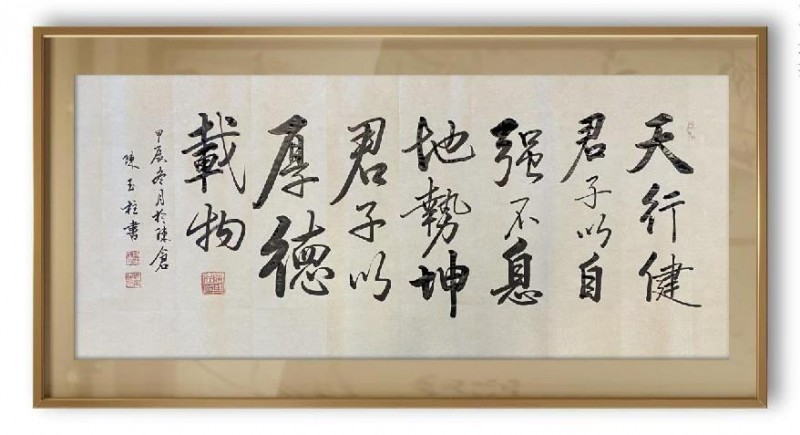 天行健
君子以自
强不息
地勢坤
君子以
厚德
載物
甲辰冬月於陳倉
陳玉柱書